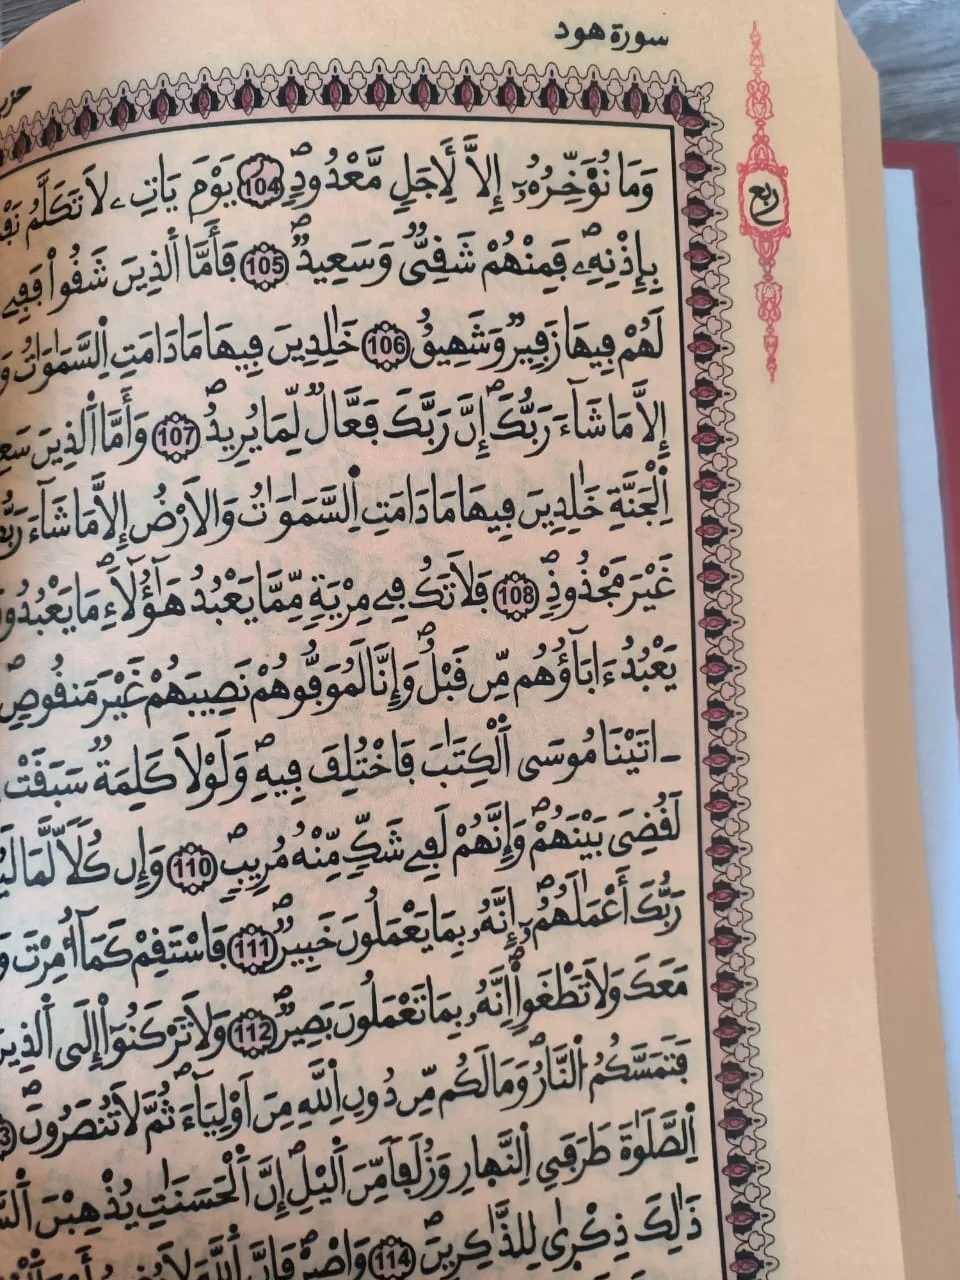 سورة هود
ربع
وَمَا نُؤَخِّرُهُۥٓ إِلَّا لِأَجَلٖ مَّعْدُودٖۖ 104 يَوْمَ يَاتِۦ لَا تَكَلَّمُ
بِإِذْنِهِۦۖ فَمِنْهُمْ شَقِيّٞ وَسَعِيدٞۖ 105 فَأَمَّا اَلذِينَ شَقُواْ فَفِے
لَهُمْ فِيهَا زَفِيرٞ وَشَهِيقٌ 106 خَٰلِدِينَ فِيهَا مَا دَامَتِ اِلسَّمَٰوَٰتُ
إِلَّا مَا شَآءَ رَبُّكَۖ إِنَّ رَبَّكَ فَعَّالٞ لِّمَا يُرِيدُۖ 107 وَأَمَّا اَلذِينَ
اِلْجَنَّةِ خَٰلِدِينَ فِيهَا مَا دَامَتِ اِلسَّمَٰوَٰتُ وَالَارْضُ إِلَّا مَا شَآءَ
غَيْرَ مَجْذُوذٖۖ 108 فَلَا تَكُ فِے مِرْيَةٖ مِّمَّا يَعْبُدُ هَٰٓؤُلَآءِۖ مَا يَعْبُدُونَ
يَعْبُدُ ءَابَآؤُهُم مِّن قَبْلُۖ وَإِنَّا لَمُوَفُّوهُمْ نَصِيبَهُمْ غَيْرَ مَنقُوصٖۖ
ـاتَيْنَا مُوسَى اَلْكِتَٰبَ فَاخْتُلِفَ فِيهِۖ وَلَوْلَا كَلِمَةٞ سَبَقَتْ
لَقُضِيَ بَيْنَهُمْۖ وَإِنَّهُمْ لَفِے شَكّٖ مِّنْهُ مُرِيبٖۖ 110 وَإِن كُلّاٗ لَّمَا
رَبُّكَ أَعْمَٰلَهُمُۥٓۖ إِنَّهُۥ بِمَا يَعْمَلُونَ خَبِيرٞۖ 111 فَاسْتَقِمْ كَمَآ أُمِرْتَ
مَعَكَ وَلَا تَطْغَوِاْۖ اِنَّهُۥ بِمَا تَعْمَلُونَ بَصِيرٞۖ 112 وَلَا تَرْكَنُوٓاْ إِلَى اَلذِينَ
فَتَمَسَّكُمُ اُلنَّارُۖ وَمَا لَكُم مِّن دُونِ اِللَّهِ مِنَ اَوْلِيَآءَۖ ثُمَّ لَا تُنصَرُونَۖ
اِلصَّلَوٰةَ طَرَفَيِ اِلنَّهَارِ وَزُلَفاٗ مِّنَ اَليْلِۖ إِنَّ اَلْحَسَنَٰتِ يُذْهِبْنَ
ذَٰلِكَ ذِكْرَىٰ لِلذَّٰكِرِينَۖ 114 وَاصْبِرْ فَإِنَّ اَللَّهَ لَا